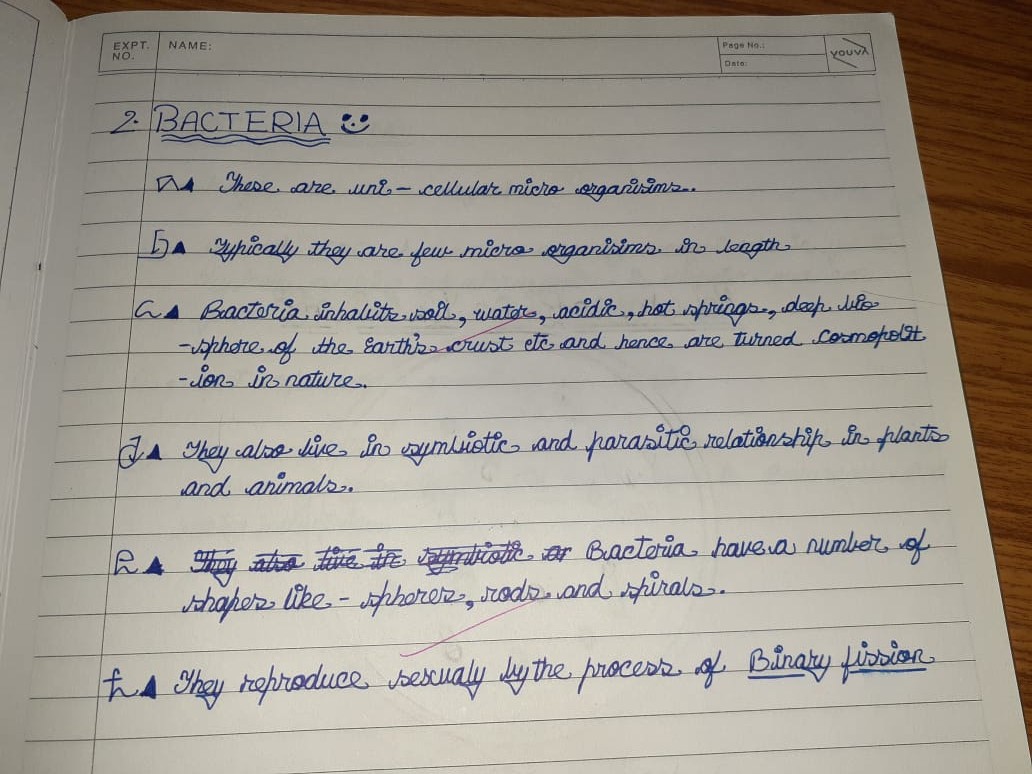 EXPT. NO.
NAME:
Page No.:
Date:
YOUVA
2. BACTERIA
a These are uni - cellular micro organisims.
b Typically they are few micro organisims in length
c Bacteria inhabits soil, water, acidic, hot springs, deep bio
-sphere of the Earth's crust etc and hence are turned cosmopolit
-ion in nature.
d They also live in symbiotic and parasitic relationship in plants
and animals.
e They also live in symbiotic or Bacteria have a number of
shapes like - spheres, rods and spirals.
f They reproduce sexualy by the process of Binary fission